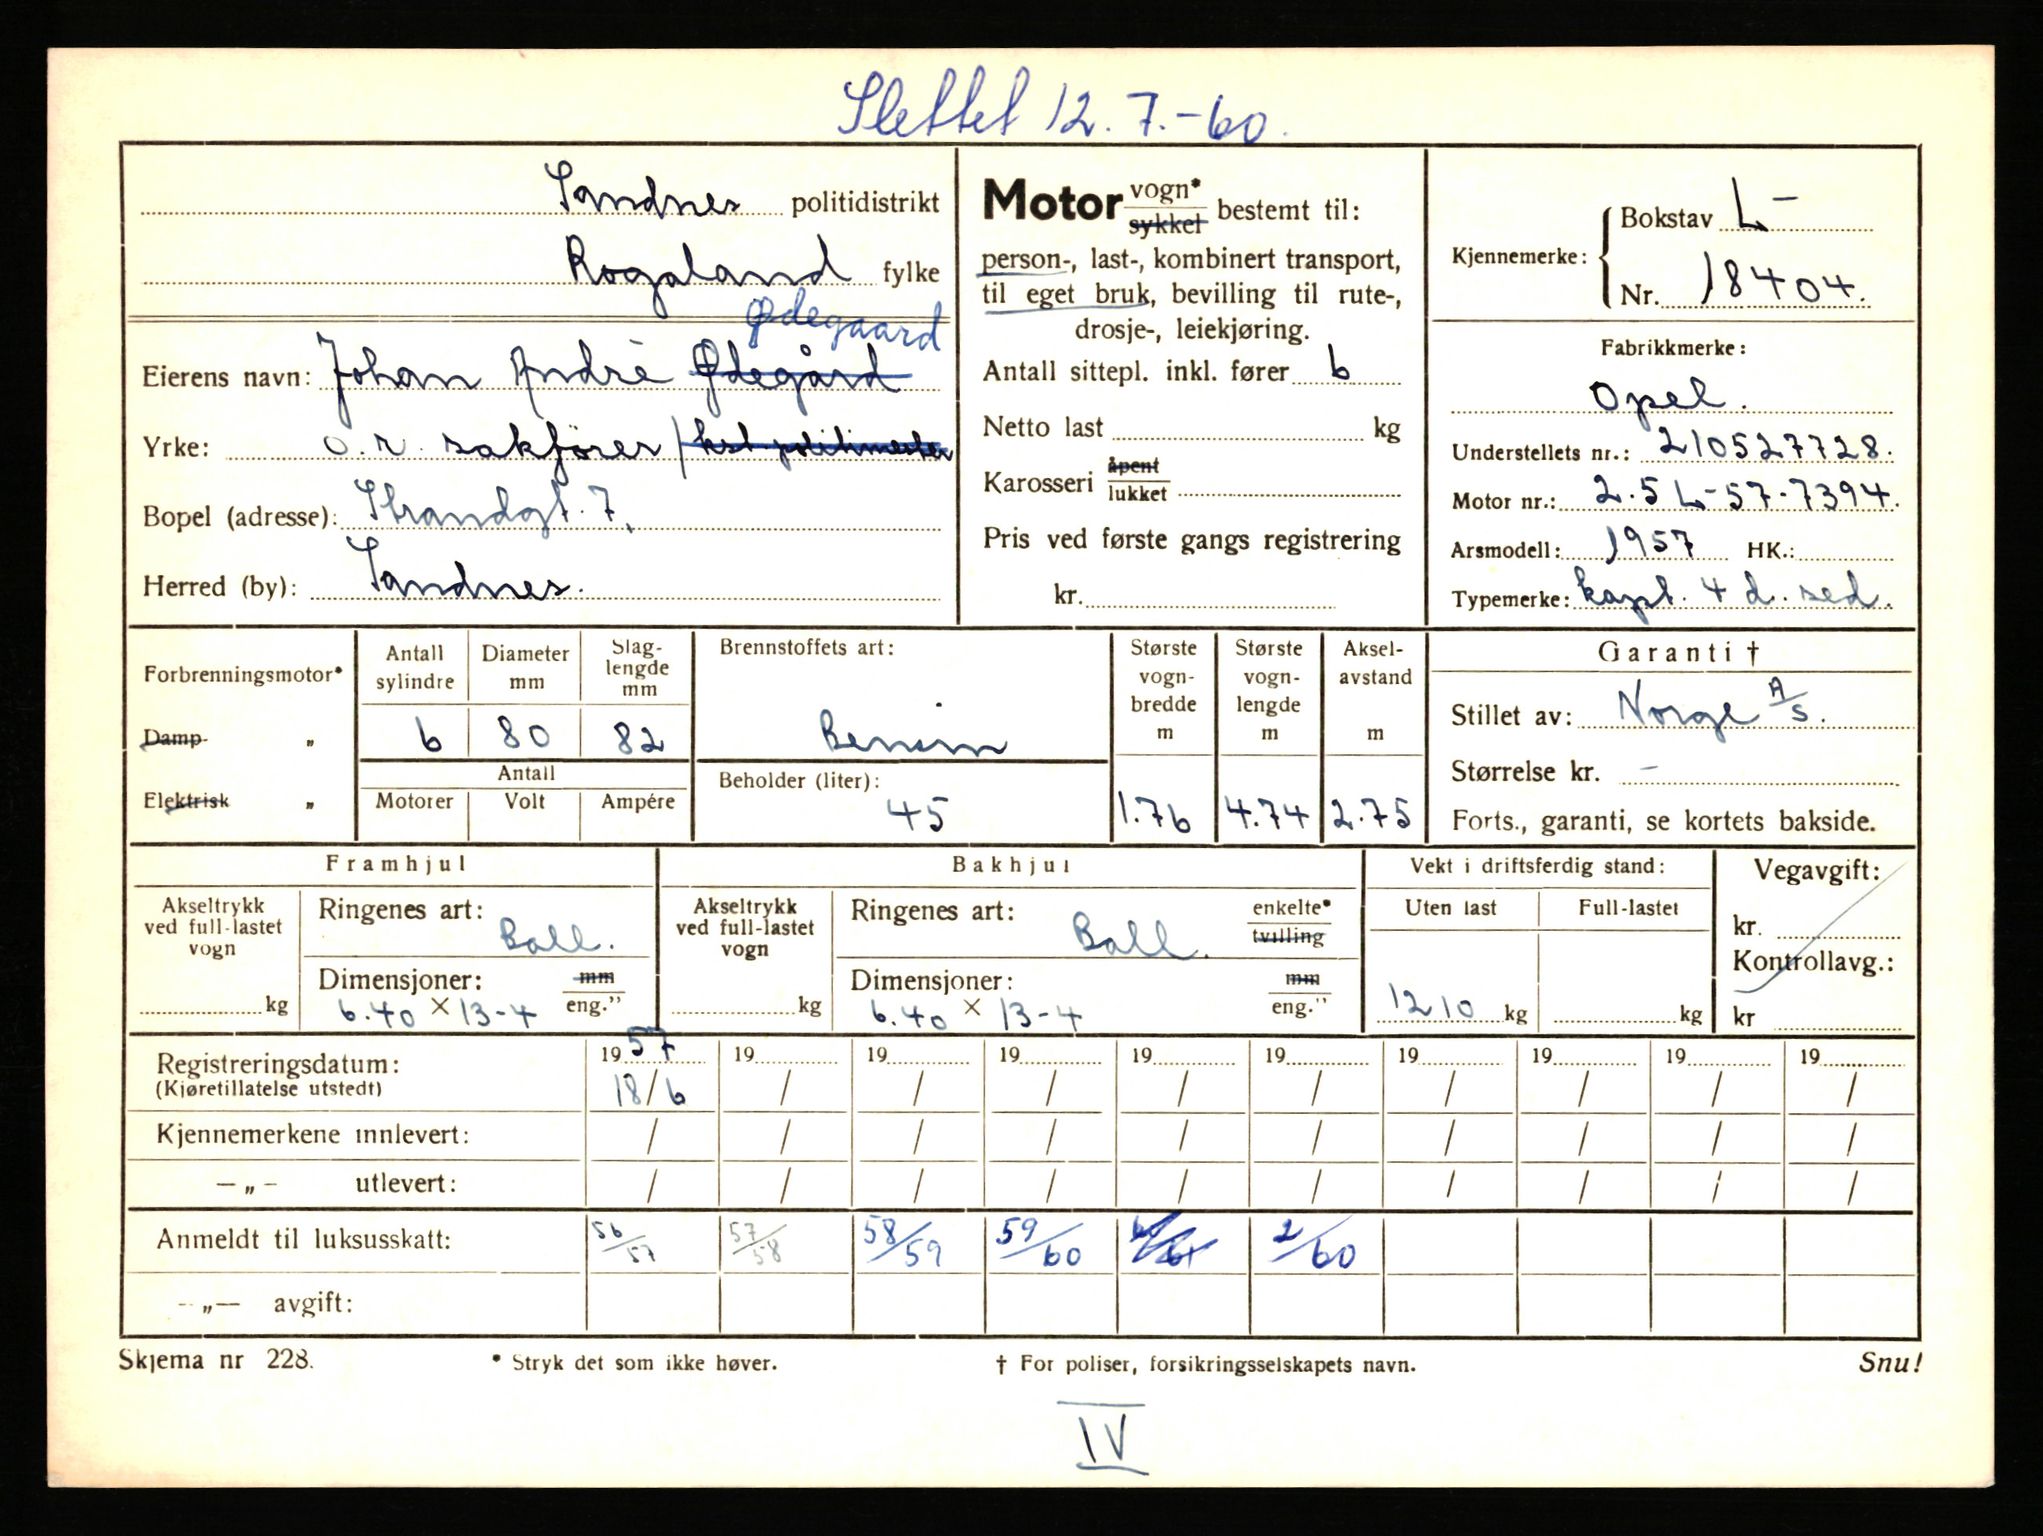 Slettet 12.7.-60.
Sandnes politidistrikt
Rogaland fylke
Ødegaard
Eierens navn: Johan André Ødegård
Yrke: o.r. sakfører / kst politimester
Bopel (adresse): Strandgt. 7.
Herred (by): Sandnes.
Motor vogn* sykkel bestemt til:
person-, last-, kombinert transport,
til eget bruk, bevilling til rute-,
drosje-, leiekjøring.
Antall sittepl. inkl. fører 6
Netto last kg
Karosseri åpent lukket
Pris ved første gangs registrering
kr.
Kjennemerke: Bokstav L-
Nr. 18404.
Fabrikkmerke:
Opel.
Understellets nr.: 210527728.
Motor nr.: 2.5 L-57-7394.
Arsmodell: 1957 HK.:
Typemerke: kapt. 4 d. sed.
Forbrenningsmotor*
Damp "
Elektrisk "
Antall sylindre Diameter mm Slag-lengde mm
6 80 82
Antall
Motorer Volt Ampére
Brennstoffets art:
Bensin
Beholder (liter):
45
Største vogn-bredde m Største vogn-lengde m Aksel-avstand m
1.76 4.74 2.75
Garanti †
Stillet av: Norge A/S.
Størrelse kr. -
Forts., garanti, se kortets bakside.
Framhjul
Akseltrykk ved full-lastet vogn
kg
Ringenes art: Ball.
Dimensjoner: mm eng."
6.40 × 13-4
Bakhjul
Akseltrykk ved full-lastet vogn
kg
Ringenes art: Ball. enkelte* tvilling
Dimensjoner: mm eng."
6.40 × 13-4
Vekt i driftsferdig stand:
Uten last Full-lastet
1210 kg kg
Vegavgift:
kr.
Kontrollavg.:
kr
Registreringsdatum: 1957 19 19 19 19 19 19 19 19 19
(Kjøretillatelse utstedt) 18/6 / / / / / / / / /
Kjennemerkene innlevert: / / / / / / / / / /
—„— utlevert: / / / / / / / / / /
Anmeldt til luksusskatt: 56/57 57/58 58/59 59/60 60/61 2/60
—„— avgift:
Skjema nr 228.
* Stryk det som ikke høver.
† For poliser, forsikringsselskapets navn.
Snu!
IV